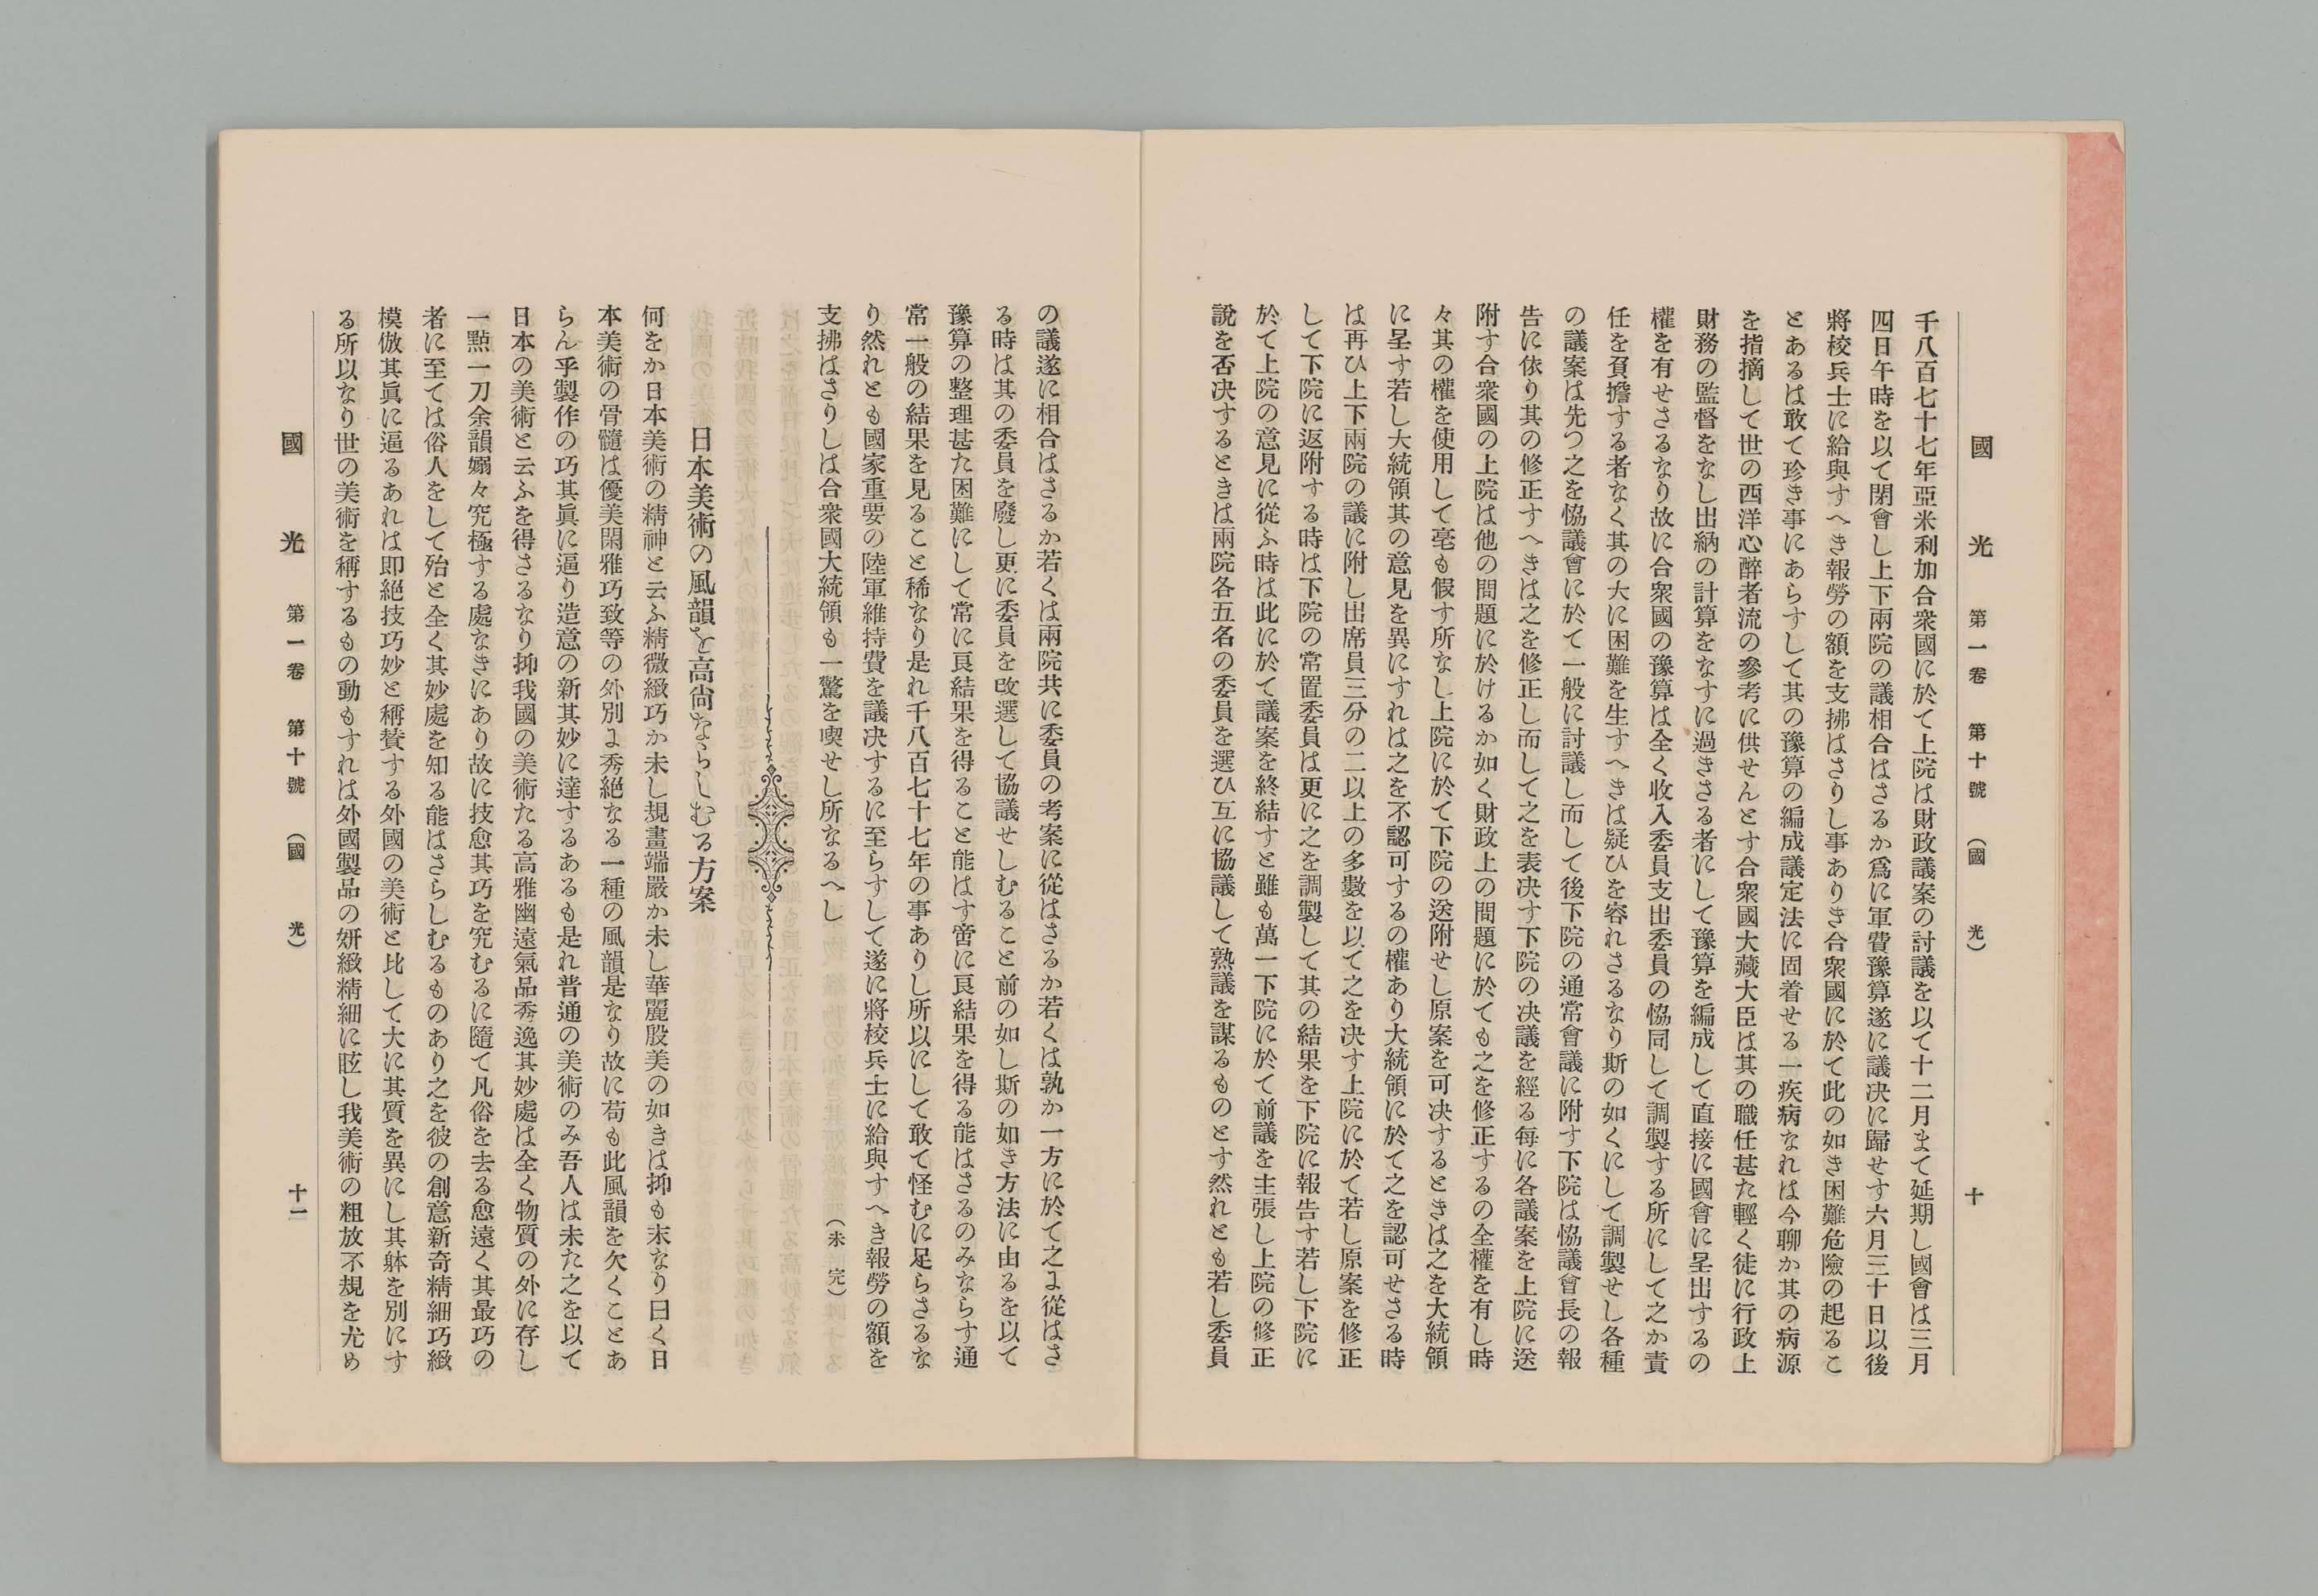 國光 第一卷 第十號 (國光) 十
千八百七十七年亞米利加合衆國に於て上院は財政議案の討議を以て十二月まて延期し國會は三月
四日午時を以て閉會し上下兩院の議相合はさるか爲に軍費豫算遂に議决に歸せす六月三十日以後
將校兵士に給與すへき報勞の額を支拂はさりし事ありき合衆國に於て此の如き困難危險の起るこ
とあるは敢て珍き事にあらすして其の豫算の編成議定法に固着せる一疾病なれは今聊か其の病源
を指摘して世の西洋心醉者流の參考に供せんとす合衆國大藏大臣は其の職任甚た輕く徒に行政上
財務の監督をなし出納の計算をなすに過きさる者にして豫算を編成して直接に國會に呈出するの
權を有せさるなり故に合衆國の豫算は全く收入委員支出委員の恊同して調製する所にして之か責
任を負擔する者なく其の大に困難を生すへきは疑ひを容れさるなり斯の如くにして調製せし各種
の議案は先つ之を恊議會に於て一般に討議し而して後下院の通常會議に附す下院は恊議會長の報
告に依り其の修正すへきは之を修正し而して之を表决す下院の决議を經る每に各議案を上院に送
附す合衆國の上院は他の問題に於けるか如く財政上の問題に於ても之を修正するの全權を有し時
々其の權を使用して毫も假す所なし上院に於て下院の送附せし原案を可决するときは之を大統領
に呈す若し大統領其の意見を異にすれは之を不認可するの權あり大統領に於て之を認可せさる時
は再ひ上下兩院の議に附し出席員三分の二以上の多數を以て之を决す上院に於て若し原案を修正
して下院に返附する時は下院の常置委員は更に之を調製して其の結果を下院に報告す若し下院に
於て上院の意見に從ふ時は此に於て議案を終結すと雖も萬一下院に於て前議を主張し上院の修正
說を否决するときは兩院各五名の委員を選ひ互に協議して熟議を謀るものとす然れとも若し委員
の議遂に相合はさるか若くは兩院共に委員の考案に從はさるか若くは孰か一方に於て之に從はさ
る時は其の委員を廢し更に委員を改選して協議せしむること前の如し斯の如き方法に由るを以て
豫算の整理甚た困難にして常に良結果を得ること能はす啻に良結果を得る能はさるのみならす通
常一般の結果を見ること稀なり是れ千八百七十七年の事ありし所以にして敢て怪むに足らさるな
り然れとも國家重要の陸軍維持費を議决するに至らすして遂に將校兵士に給與すへき報勞の額を
支拂はさりしは合衆國大統領も一驚を喫せし所なるへし (未完)
日本美術の風韻を高尙ならしむる方案
何をか日本美術の精神と云ふ精微緻巧か未し規畫端嚴か未し華麗殷美の如きは抑も末なり曰く日
本美術の骨髓は優美閑雅巧致等の外別に秀絶なる一種の風韻是なり故に苟も此風韻を欠くことあ
らん乎製作の巧其眞に逼り造意の新其妙に達するあるも是れ普通の美術のみ吾人は未た之を以て
日本の美術と云ふを得さるなり抑我國の美術たる高雅幽遠氣品秀逸其妙處は全く物質の外に存し
一㸃一刀余韻嫋々究極する處なきにあり故に技愈其巧を究むるに隨て凡俗を去る愈遠く其最巧の
者に至ては俗人をして殆と全く其妙處を知る能はさらしむるものあり之を彼の創意新奇精細巧緻
模倣其眞に逼るあれは即絕技巧妙と稱賛する外國の美術と比して大に其質を異にし其躰を別にす
る所以なり世の美術を稱するもの動もすれは外國製品の妍緻精細に眩し我美術の粗放不規を尤め
國光 第一卷 第十號 (國光) 十一